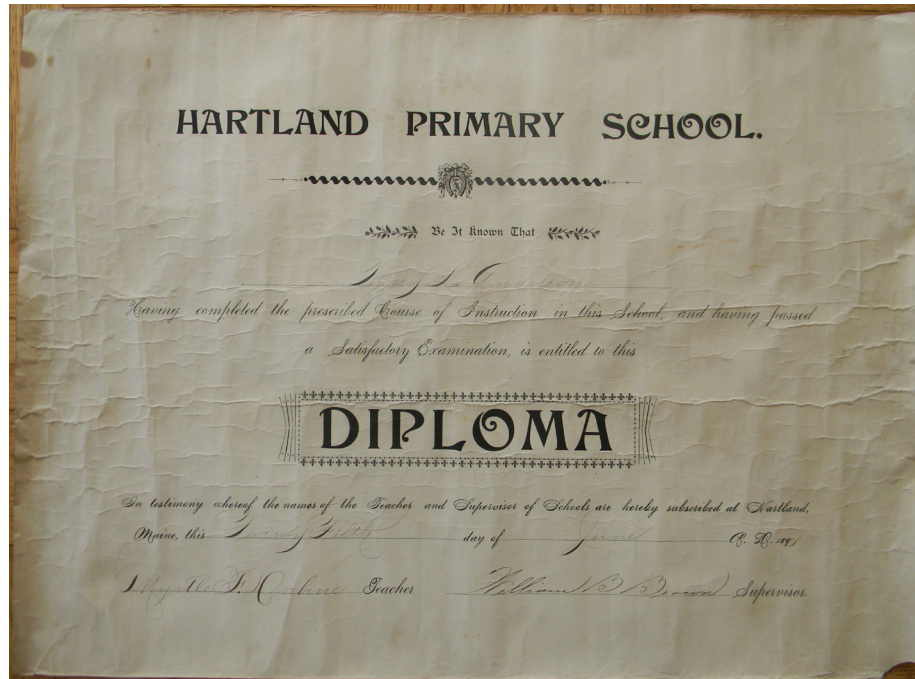 HARTLAND PRIMARY SCHOOL.
Be It Known That
Having completed the prescribed Course of Instruction in this School, and having passed
a Satisfactory Examination, is entitled to this
DIPLOMA
In testimony whereof the names of the Teacher and Supervisor of Schools are hereby subscribed at Hartland,
Maine, this Twenty Fifth day of June A. D. 189
Myrtle F. Teacher William B Brown Supervisor.